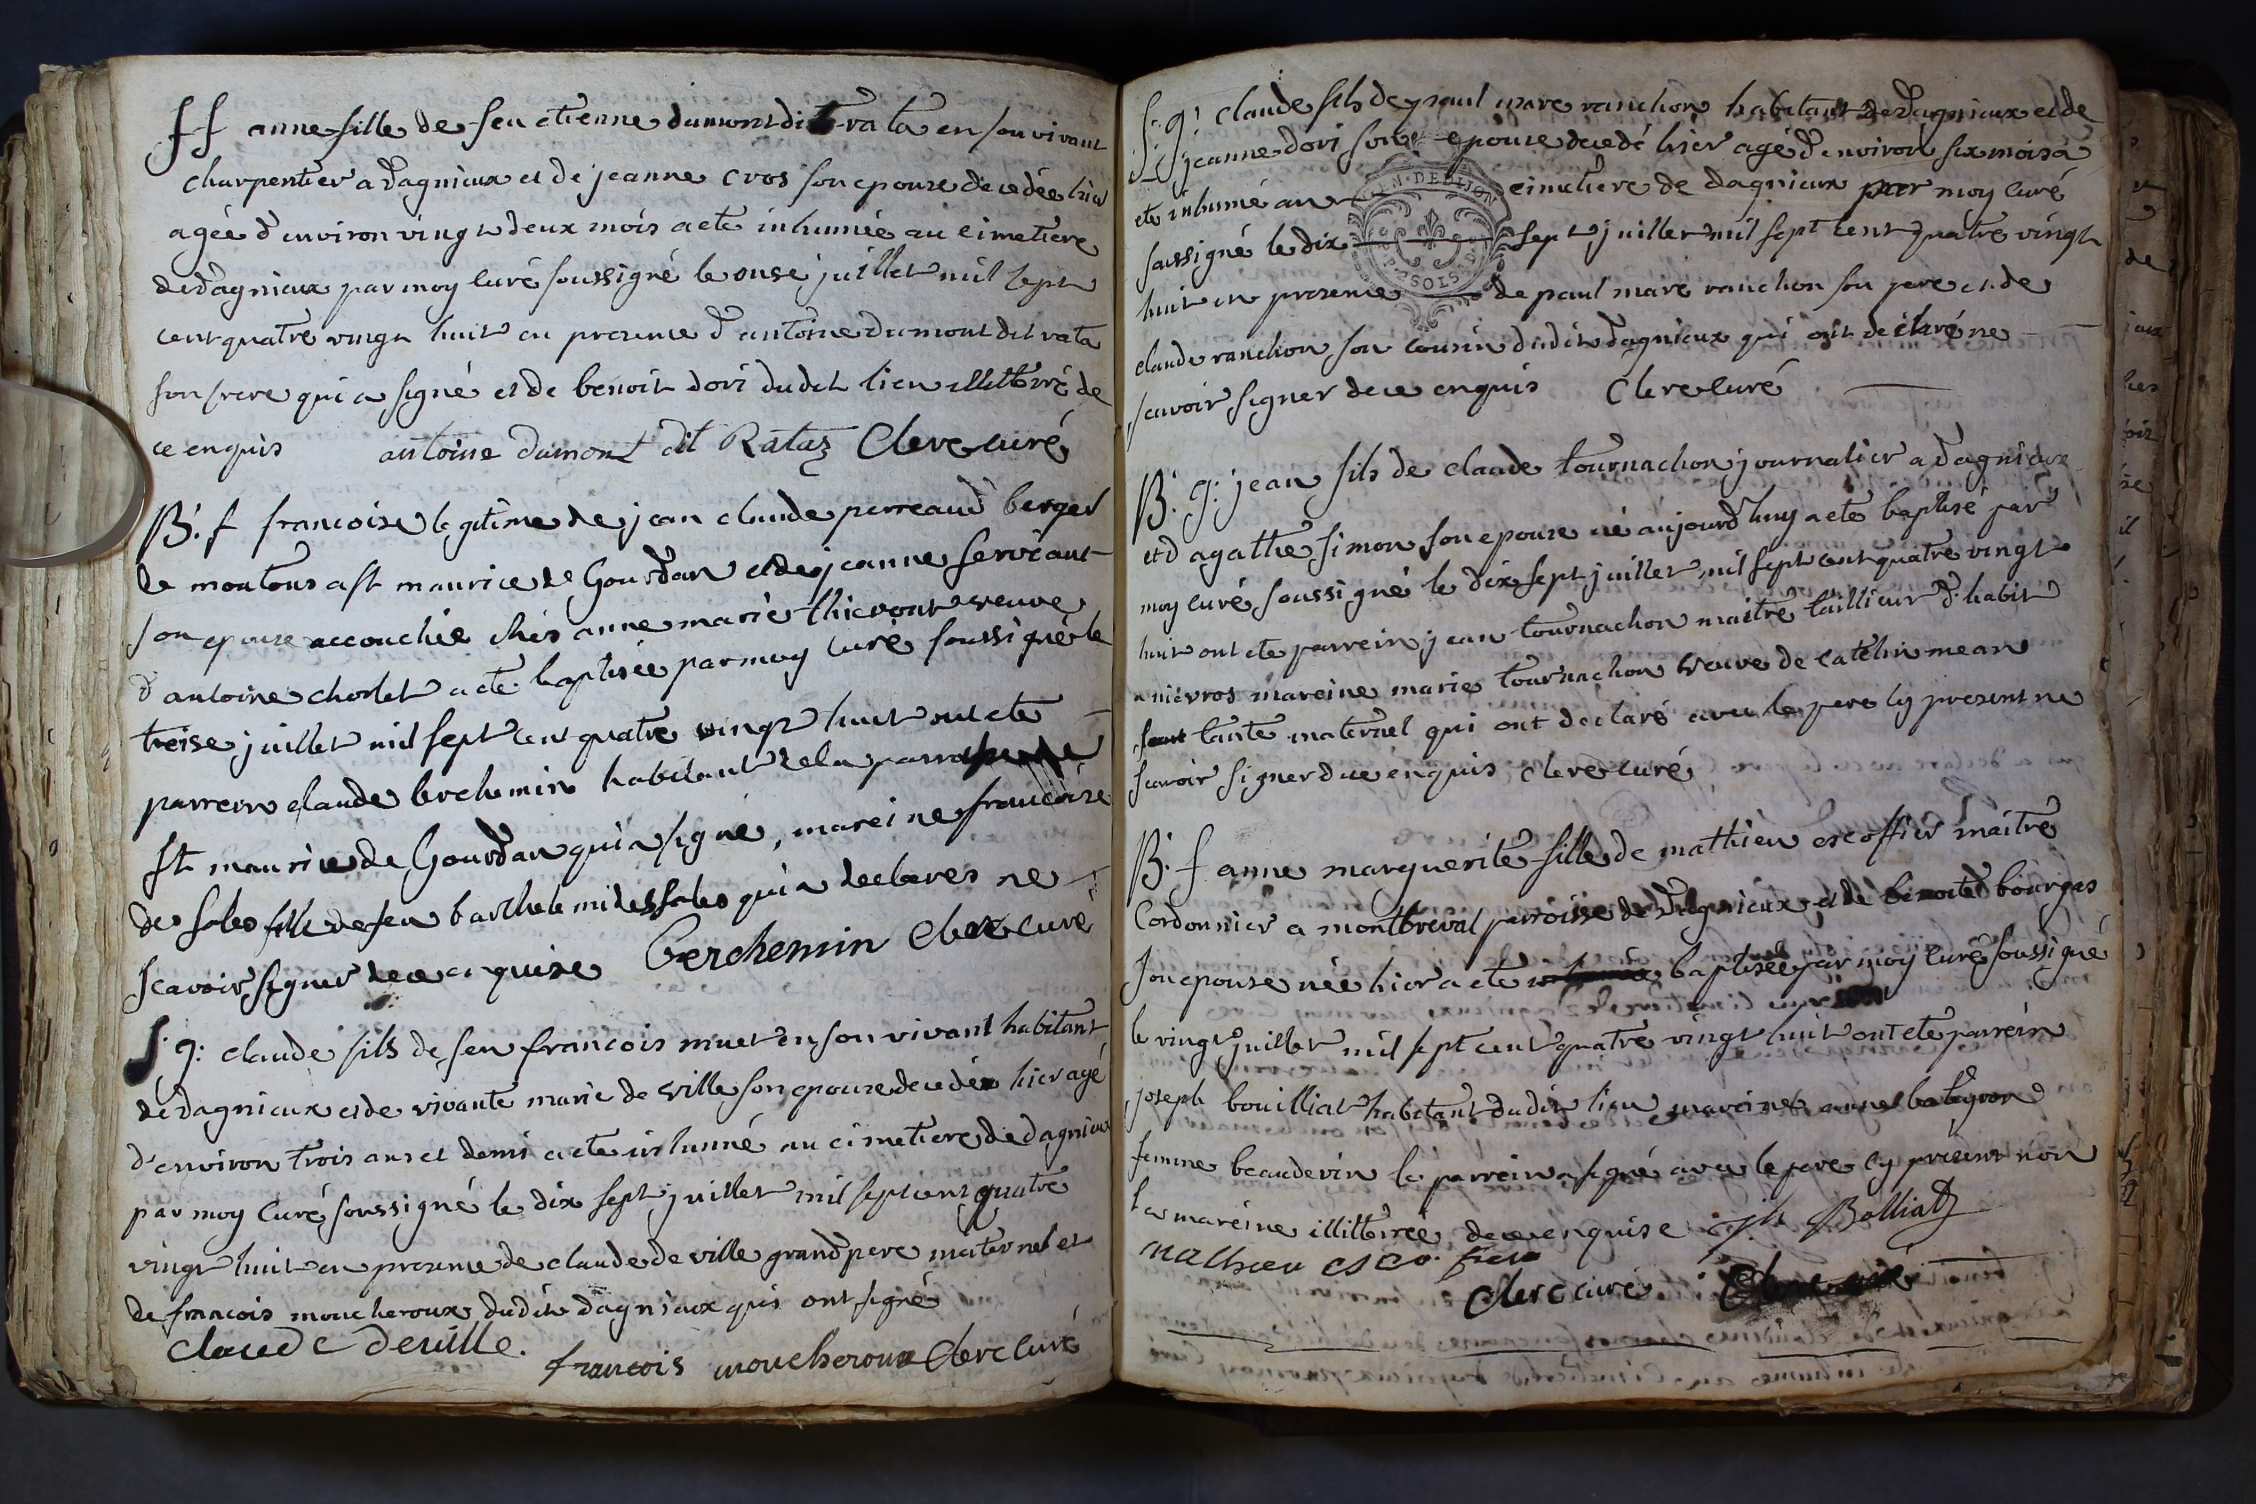 S f anne fille de feu etienne dumont dit rata en son vivant
charpentier a dagnieux et de jeanne cros son epouse decedée hier
agée d'environ vingt deux mois a eté inhumée au cimetiere
de dagnieux par moy curé soussigné le onse juillet mil sept
cent quatre vingt huit en presence d'antoine dumont dit rata
son frere qui a signé et de benoit dori dudit lieu illitterré de
ce enquis antoine dumont dit Rataz Clerc curé
B. f francoise legitime de jean claude perreaud berger
de moutons a st maurice de Gourdan et de jeanne servéant
son epouse accouchée chés anne marie thievont veuve
d'antoine chorlet a eté baptisée par moy curé soussigné le
treise juillet mil sept cent quatre vingt huit ont eté
parrein claude berchemin habitant de la parroisse de
st maurice de Gourdan qui a signé, mareine francoise
de sales fille de feu barthelemi de sales qui a declarer ne
scavoir signer de ce enquise Berchemin Clerc curé
S. g: claude fils de feu francois muet en son vivant habitant
de dagnieux et de vivante marie de ville son epouse decedé hier agé
d'environ trois ans et demi a eté inhumé au cimetiere de dagnieux
par moy Curé soussigné le dix sept juillet mil sept cent quatre
vingt huit en presence de claude de ville grand pere maternel et
de francois moucheroux dudit dagnieux qui ont signé
claude deville.
francois moucheroux Clerc Curé
S. g: claude fils de paul marc ranchon habitant de dagnieux et de
jeanne dori son epouse decedé hier agé d'environ six mois a
eté inhumé au cimetiere de dagnieux par moy curé
GEN. DE DIJON
soussigné le dix sept juillet mil sept cent quatre vingt
SOLS
huit en presence de paul marc ranchon son pere et de
claude ranchon son cousin dudit dagnieux qui ont declaré ne
scavoir signer de ce enquis Clerc curé
B. g: jean fils de claude tournachon journalier a dagnieux
et d'agathe simon son epouse né aujourd'huy a eté baptisé par
moy curé soussigné le dix sept juillet mil sept cent quatre vingt
huit ont eté parrein jean tournachon maitre taillieur d'habit
a nievros mareine marie tournachon veuve de catelin mean
tante maternel qui ont declaré avec le pere cy present ne
scavoir signer de ce enquis clerc curé
B. f anne marguerite fille de mathieu escoffier maitre
Cordonnier a montbreval parroisse de dagnieux et de benoite bourgas
son epouse née hier a eté baptisée par moy curé soussigné
le vingt juillet mil sept cent quatre vingt huit ont eté parrein
joseph bouilliat habitant dudit lieu mareine anne
femme beaudevin le parrein a signé avec le pere cy present non
la mareine illiterrée de ce enquise jph Bolliat
mathieu esco fier
Clerc curé